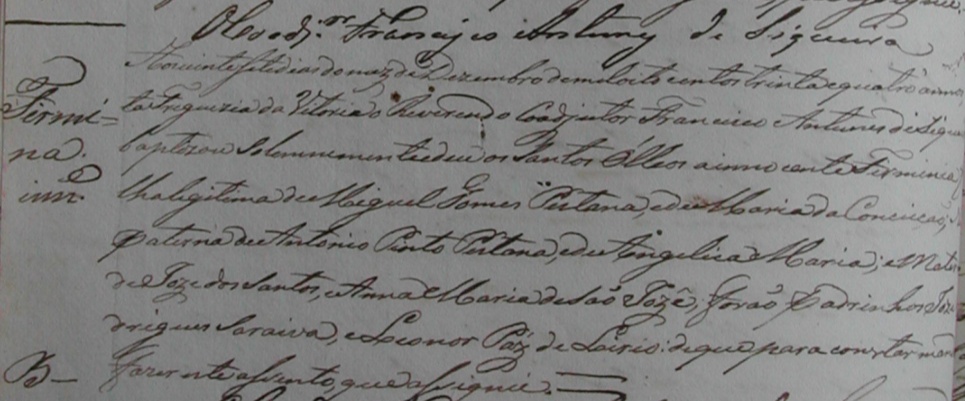 O Coadj.or Francisco Antunes de Siqueira
Firmi=
na.
inn.
Aos vinte sete dias do mez de Dezembro de mil oito centos trinta e quatro annos
ta Freguezia da Vitoria o Reverendo Coadjutor Francisco Antunes de Sique
baptizou solemnemente e deu os Santos Olleos a inno cente Firminia,
lha legitima de Miguel Gomes Pestana, e de Maria da Conceição,
paterna de Antonio Pinto Pestana, e de Angelica Maria; e Mater
de Joze dos Santos, e Anna Maria de São Jozê, forão Padrinhos Joze
drigues Saraiva, e Leonor Páz de Leirio: de que para constar man
B— fazer este assento, que assignei.